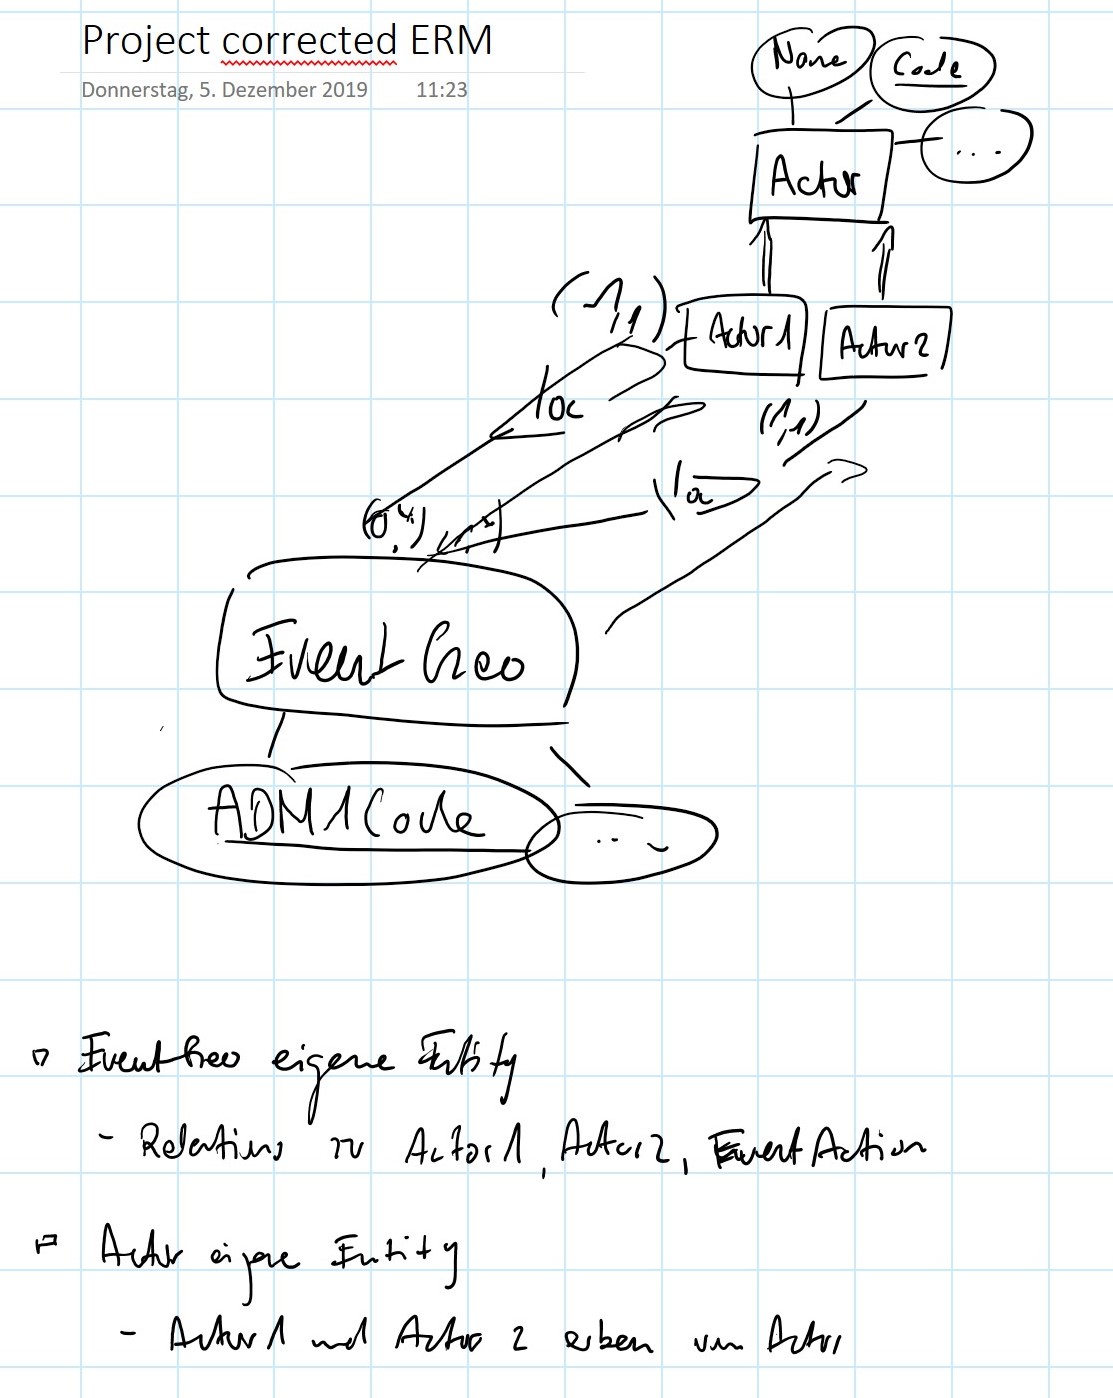 Project corrected ERM
Donnerstag, 5. Dezember 2019 11:23
Name
Code
...
Actor
(1,1)
Actor1
Actor2
loc
(1,1)
loc
EventGeo
ADM1Code
...
EventGeo eigene Entity
- Relations zu Actor1, Actor2, EventAction
Actor eigene Entity
- Actor1 und Actor 2 erben von Actor